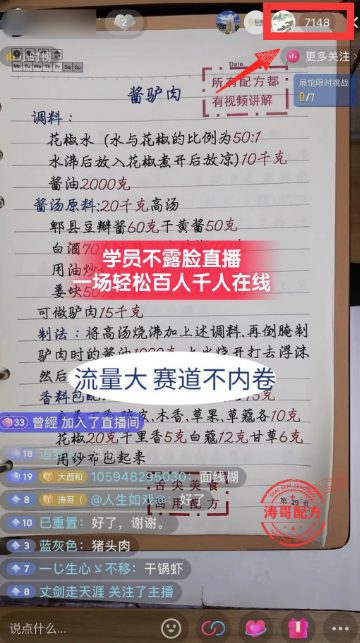 7148
更多关注
展馆限时挑战
0/7
Date.
Mo Tu We Th Fr Sa Su
酱驴肉
所有配方都
有视频讲解
调料：
花椒水（水与花椒的比例为50:1
水沸后放入花椒煮开后放凉）10千克
酱油2000克
酱汤原料:20千克高汤
郫县豆瓣酱60克干黄酱50克
白酒
用油炒
姜块
学员不露脸直播
一场轻松百人千人在线
可做驴肉15千克
制法：将高汤烧沸加上述调料,再倒腌制
驴肉时的酱油1000克
上火烧开打去浮沫
然后
流量大 赛道不内卷
香料包配
木香、草果、草蔻各10克
花椒20克千里香5克白蔻12克甘草6克
用纱布包起来
33 曾經 加入了直播间
18
19 大酉和 105948295030：面线糊
8 涛哥（@人生如戏@：好了
10 已重置：好了，谢谢。
3 蓝灰色：猪头肉
8 一じ生心ゞ不移：干锅虾
8 丈剑走天涯 关注了主播
舌尖美食
商用配方
涛哥配方
说点什么...